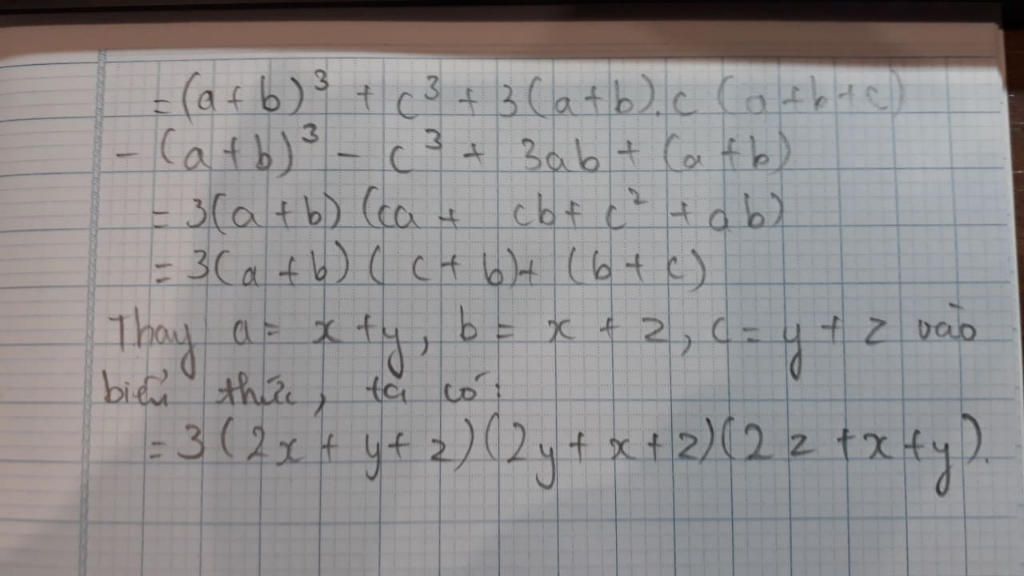 = (a + b)³ + c³ + 3(a + b).c (a + b + c)
- (a + b)³ - c³ + 3ab + (a + b)
= 3(a + b) (ca + cb + c² + ab)
= 3(a + b) ( c + b) + (b + c)
Thay a = x + y, b = x + z, c = y + z vào
biểu thức, ta có:
= 3 (2x + y + z)(2y + x + z)(2z + x + y).